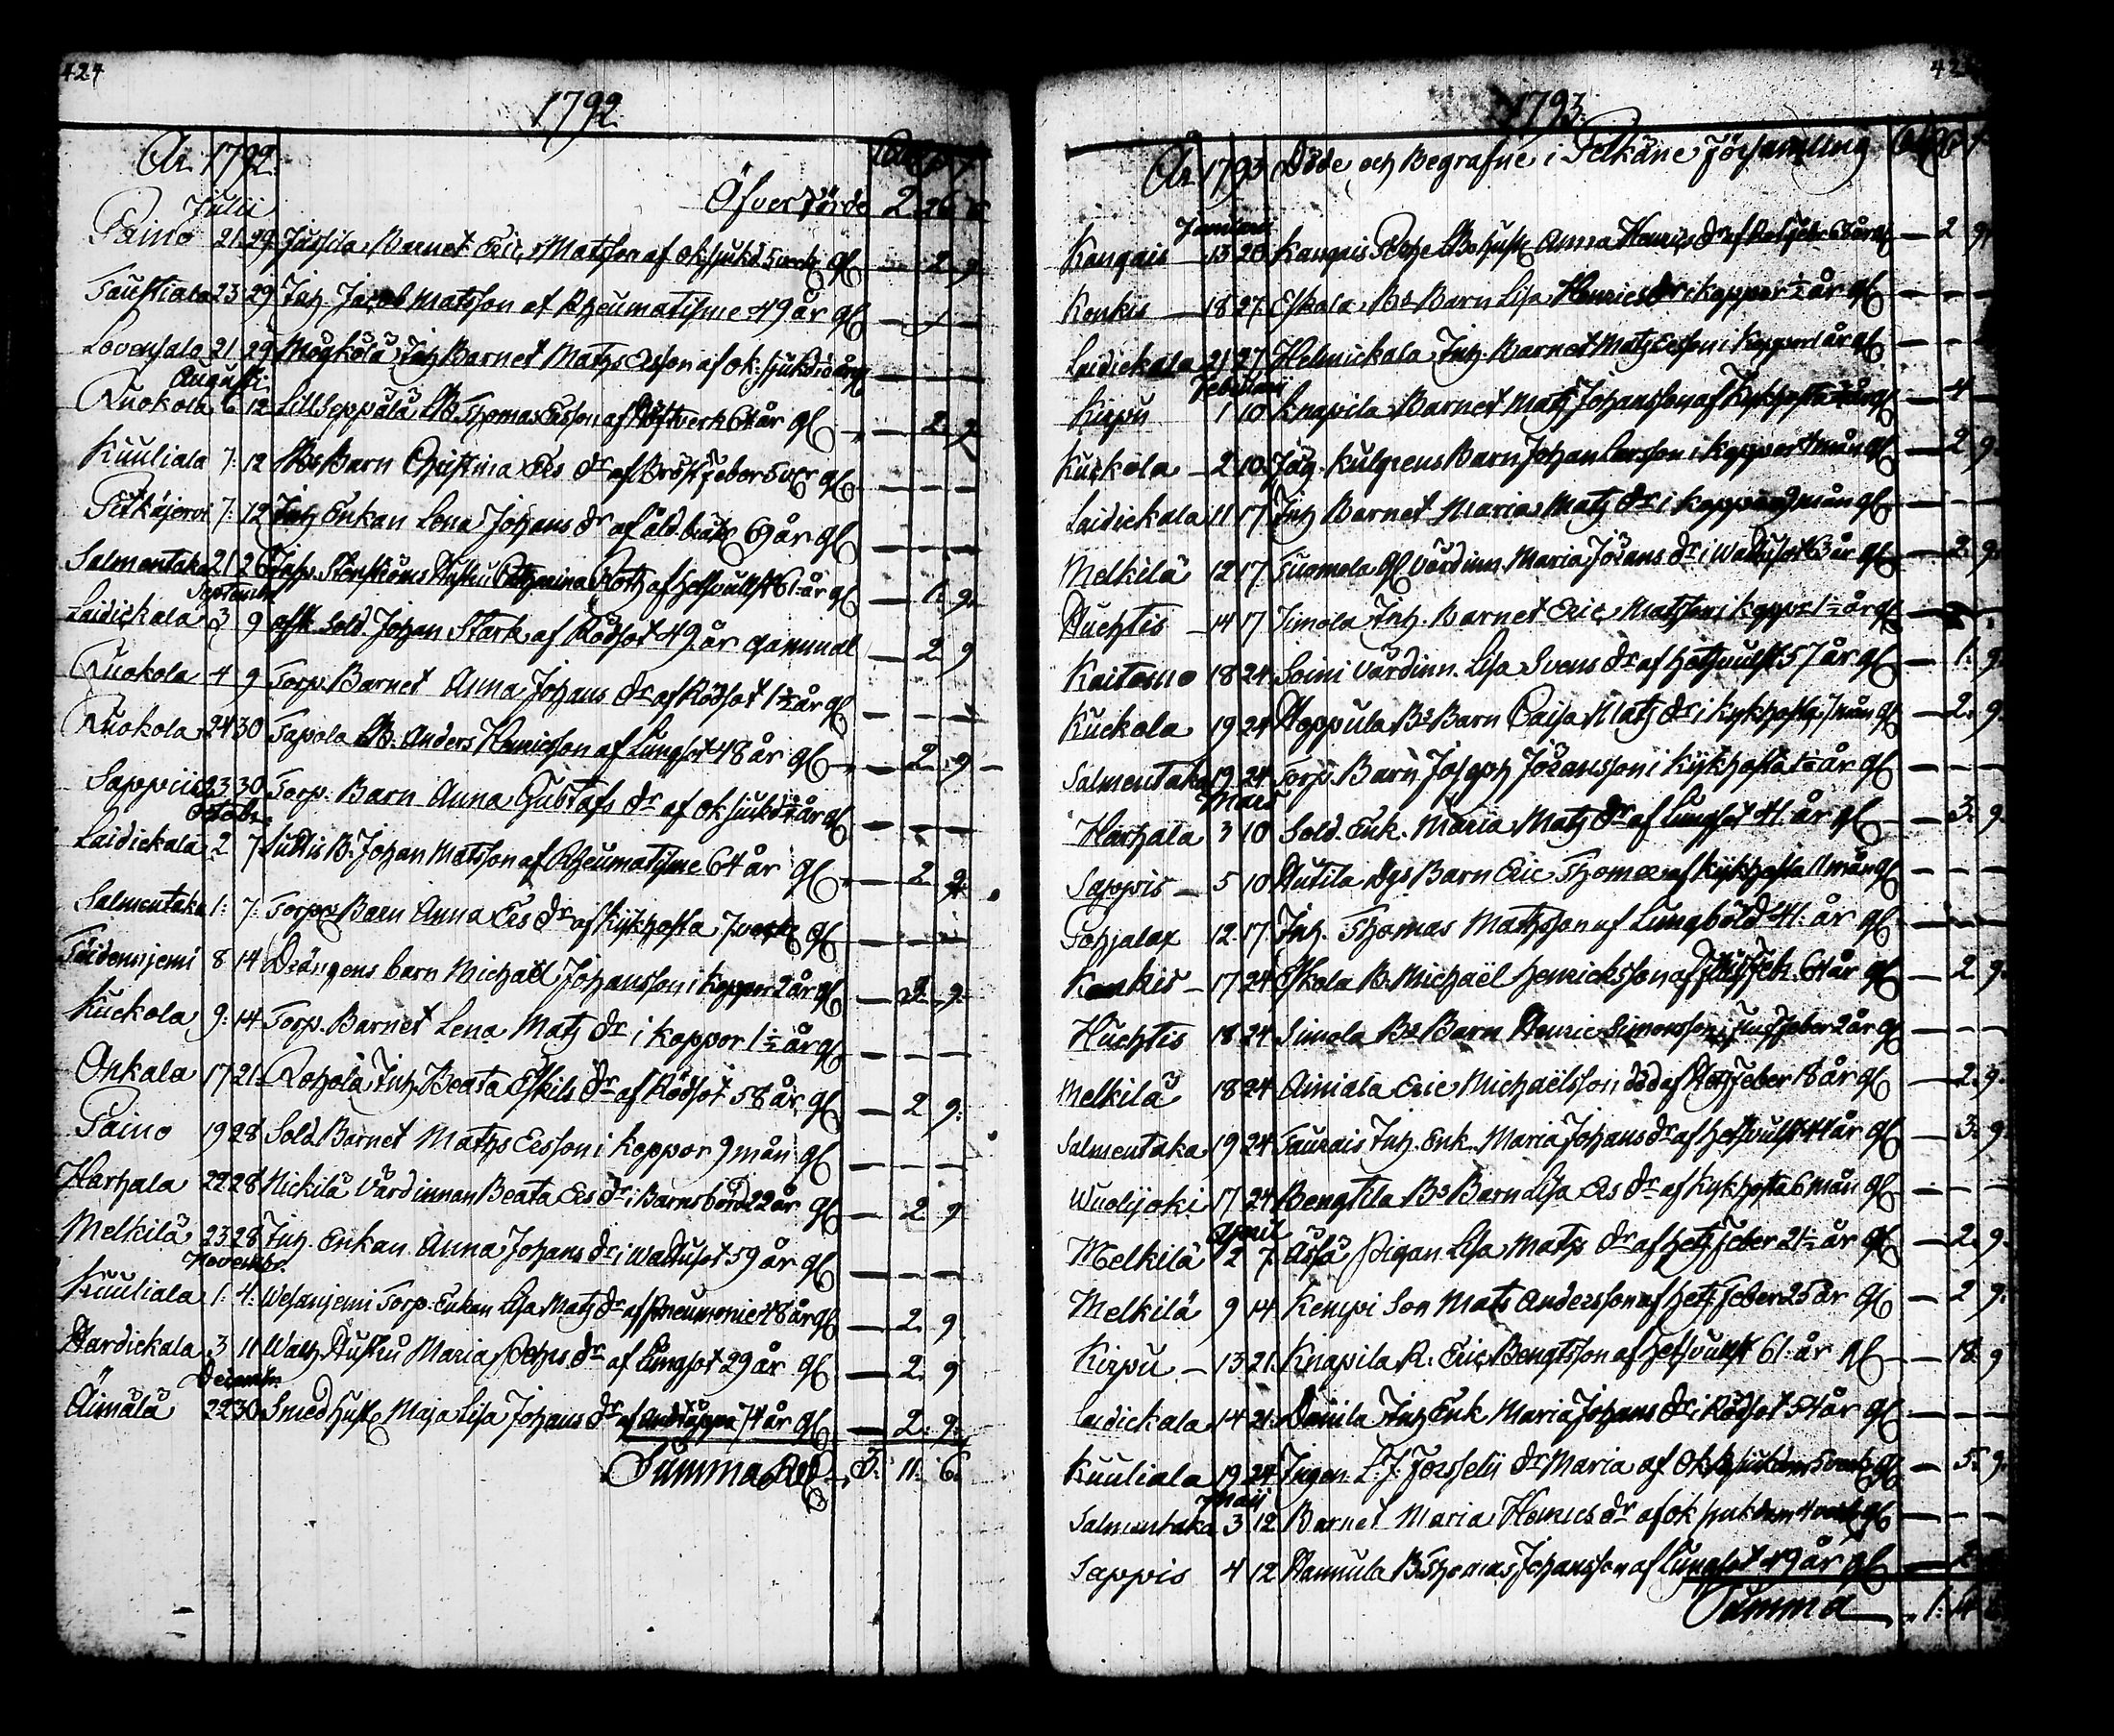 424
1792
År 1792.
Öfverförde 2. 26
Julii
Paino 21 29 Jussila Barnet Eric Matsson af ok. sjukd. 5 veck. gl — 2. 9.
Taustiala 23 29 Inh. Jacob Matsson af Rheumatisme 49 år gl — — —
Lovensalo 21 29 Inh Barnet Mathz Ersson af ok. sjukd. år gl — — —
Augusti
Ruokola 6 12 Lill Seppälä B. Thomas Ersson af 64 år gl — 2. 9.
Kuuliala 7. 12 Bs Barn Christina Ers dr af Bröstfeber 5 gl — — —
Pitkäjervi 7. 12 Inh Enkan Lena Johans dr af åld. 69 år gl — — —
Salmentaka 21 26 Hustru Catharina af hetsvulst 61 år gl — 1. 9.
September
Laidickala 3 9 afsk. Sold. Johan Stark af Rödsot 49 år gammal — 2. 9
Ruokola 4 9 Torp. Barnet Anna Johans dr af Rödsot 1½ år gl — — —
Ruokola 24 30 Tapola B. Anders Henricsson af Lungsot 48 år gl — 2. 9 —
Sappiis 23 30 Torp. Barn Anna Gustafs dr af ok sjukd år gl — — —
October
Laidickala 2 7 B. Johan Matsson af Rheumatisme 64 år gl — 2. 9.
Salmentaka 1. 7. Torps Barn Anna Ers dr af Kykhosta 7 veck gl — — —
8 14 Drängens barn Michaël Johansson i koppor 2 år gl — 2. 9.
Kuckola 9. 14 Torp. Barnet Lena Matz dr i koppor 1½ år gl — — —
Onkala 17 21. Rohola Inh Beata Eskils dr af Rödsot 58 år gl — 2 9.
Paino 19 28 Sold Barnet Mathz Ersson i koppor 9 mån gl — — —
Harhala 22 28 Nickilä Värdinnan Beata Ers dr i Barnsbörd 22 år gl — 2 9
Melkilä 23 28 Inh. Enkan Anna Johans dr i Wattusot 59 år gl — — —
Novembr.
Kuuliala 1. 4. Wesanjemi Torp. Enkan Lisa Matz dr af Pneumonie 48 år gl — 2. 9
3 11 Hustru Maria dr af Lungsot 29 år gl — 2. 9
Decembr.
Äimälä 22 30 Smed Hust. Maja Lisa Johans dr af andtäppa 74 år gl — 2. 9.
Summa Rd 3. 11. 6.
1793.
År 1793 Döde och Begrafne i Pelkäne Församling
Januarii
Kangais 13 20 Kangais Anna Henrics dr 68 år gl — 2 9.
Konkis 18 27. Eskola Bs Barn Lisa Henrics dr i koppor ½ år gl — — —
Laidickala 21 27 Helmickala Inh. Barnet Matz Ersson i koppor 1 år gl — — —
Februarii
Kirpu 1 10 Knapila Barnet Matz Johansson af Kykhosta gl — 4
Kuckola 2 10. Barn Johan Larsson i koppor 4 mån gl — 2. 9.
Laidickala 11 17. Inh Barnet Maria Matz dr i koppor 9 mån gl — — —
Melkilä 12 17. Tuomola gl värdinn. Maria Jörans dr i Wattusot 63 år gl — 2. 9.
Huchtis 14 17 Simola Inh. Barnet Eric Matsson i koppor 1½ år gl — — —
Kaitosuo 18 24 Soini Värdinn. Lisa Svens dr af hetsvulst 57 år gl — 1. 9.
Kuckola 19 24 Hoppula Bs Barn Caisa Matz dr i kykhosta 7 mån gl — 2. 9.
Salmentaka 19 24 Torp. Barn Joseph Jöransson i kykhosta år gl — — —
Mars
Harhala 3 10 Sold. Enk. Maria Matz dr af Lungsot 41. år gl — 3. 9.
Sappis 5 10 Hutila Barn Eric Thomæ af kykhosta 11 mån gl — — —
Pohjalax 12. 17. Inh. Thomas Mathsson af Lungböld 41. år gl — — —
Konkis 17 24 Eskola B. Michaël Henricksson af 64 år gl — 2. 9.
Huchtis 18 24 Simola Bs Barn Henric Simonsson feber 2 år gl — — —
Melkilä 18 24 Ainiala Eric Michaëlsson död af Hetzfeber 18 år gl — 2. 9.
Salmentaka 19 24 Taurais Inh. Enk. Maria Johans dr af hetsvulst 44 år gl — 3. 9.
Wuolijoki 17 24 Bengtila Bs Barn Lisa Ers dr af kykhosta 6 mån gl — — —
April
Melkilä 2 7. Ässä Pigan Lisa Mats dr af hetz feber 21½ år gl — 2. 9.
Melkilä 9 14 Kempi Son Mats Andersson af hetz feber 25 år gl — 2 9.
Kirpu 13 21. Knapila R. Eric Bengtsson af hetsvulst 61. år gl — 18. 9
Laidickala 14 21. Danila Inh Enk Maria Johans dr i Rödsot 54 år gl — — —
Kuuliala 19 24 Ingen. L. J. Forselii dr Maria af Ok. sjukdom 5 veck. gl — 5. 9.
Maij
Salmentaka 3 12 Barnet Maria Henrics dr af ok sjukdom 4 veck gl — — —
Sappis 4 12 Hannula B. Thomas Johansson af Lungsot 49 år gl — 2
Summa 1. 14